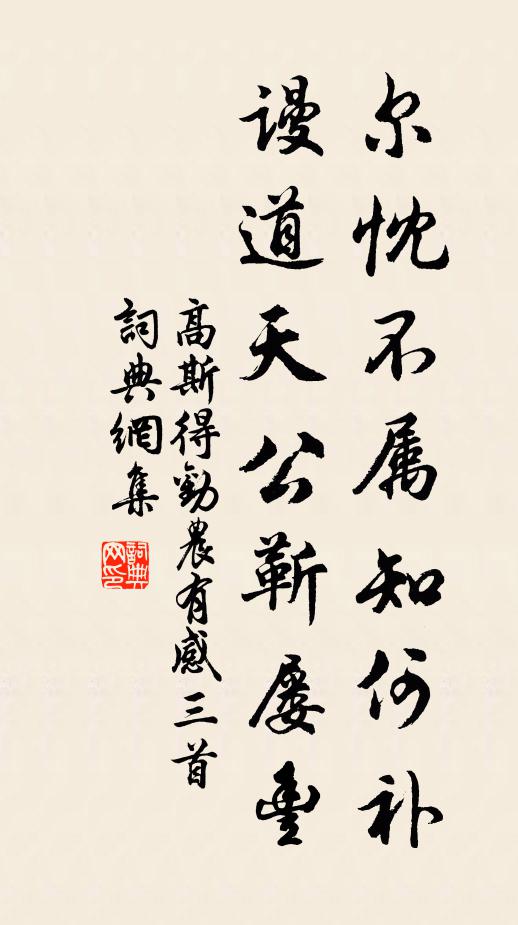 尔忱不属知何补
谩道天公靳屡豊
高斯得勸農有感三首
詞典網集
詞典网印